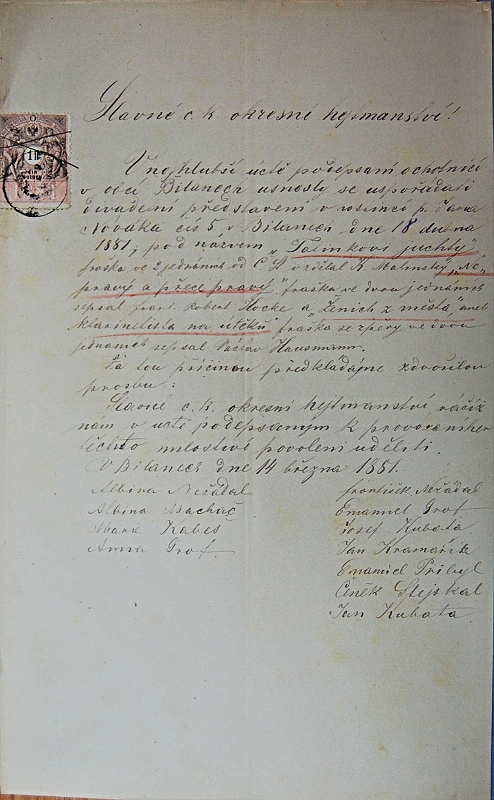 Slavné c. k. okresní hejtmanství!
V nejhlubší úctě podepsaní ochotníci
v obci Bílanech usnesly se uspořádati
divadelní představení v hostinci p. Jana
Nováka čís 5 v Bílanech dne 18 dubna
1881, pod názvem „
fraška ve 2 jednáních od vzdělal K. Malinský, „Ne
pravý a přece pravý" fraška ve dvou jednáních
sepsal frant. Robert a „Ženich z města" aneb
Klarinetista na útěku fraška se zpěvy ve dvou
jednáních sepsal Václav Hausmann.
Za tou příčinou předkládajne zdvořilou
prosbu:
Slavné c. k. okresní hejtmanství račiž
nám v úctě podepsaným k provozování her
těchto milostivě povolení uděliti.
V Bílanech dne 14 března 1881.
Albina Nežádal
Albina Macháč
Marie Kabeš
Anna Grof
František Nežádal
Emanuel Grof
Josef Kubata
Jan Kramářík
Emanuel Přibyl
Čeněk Stejskal
Jan Kubata